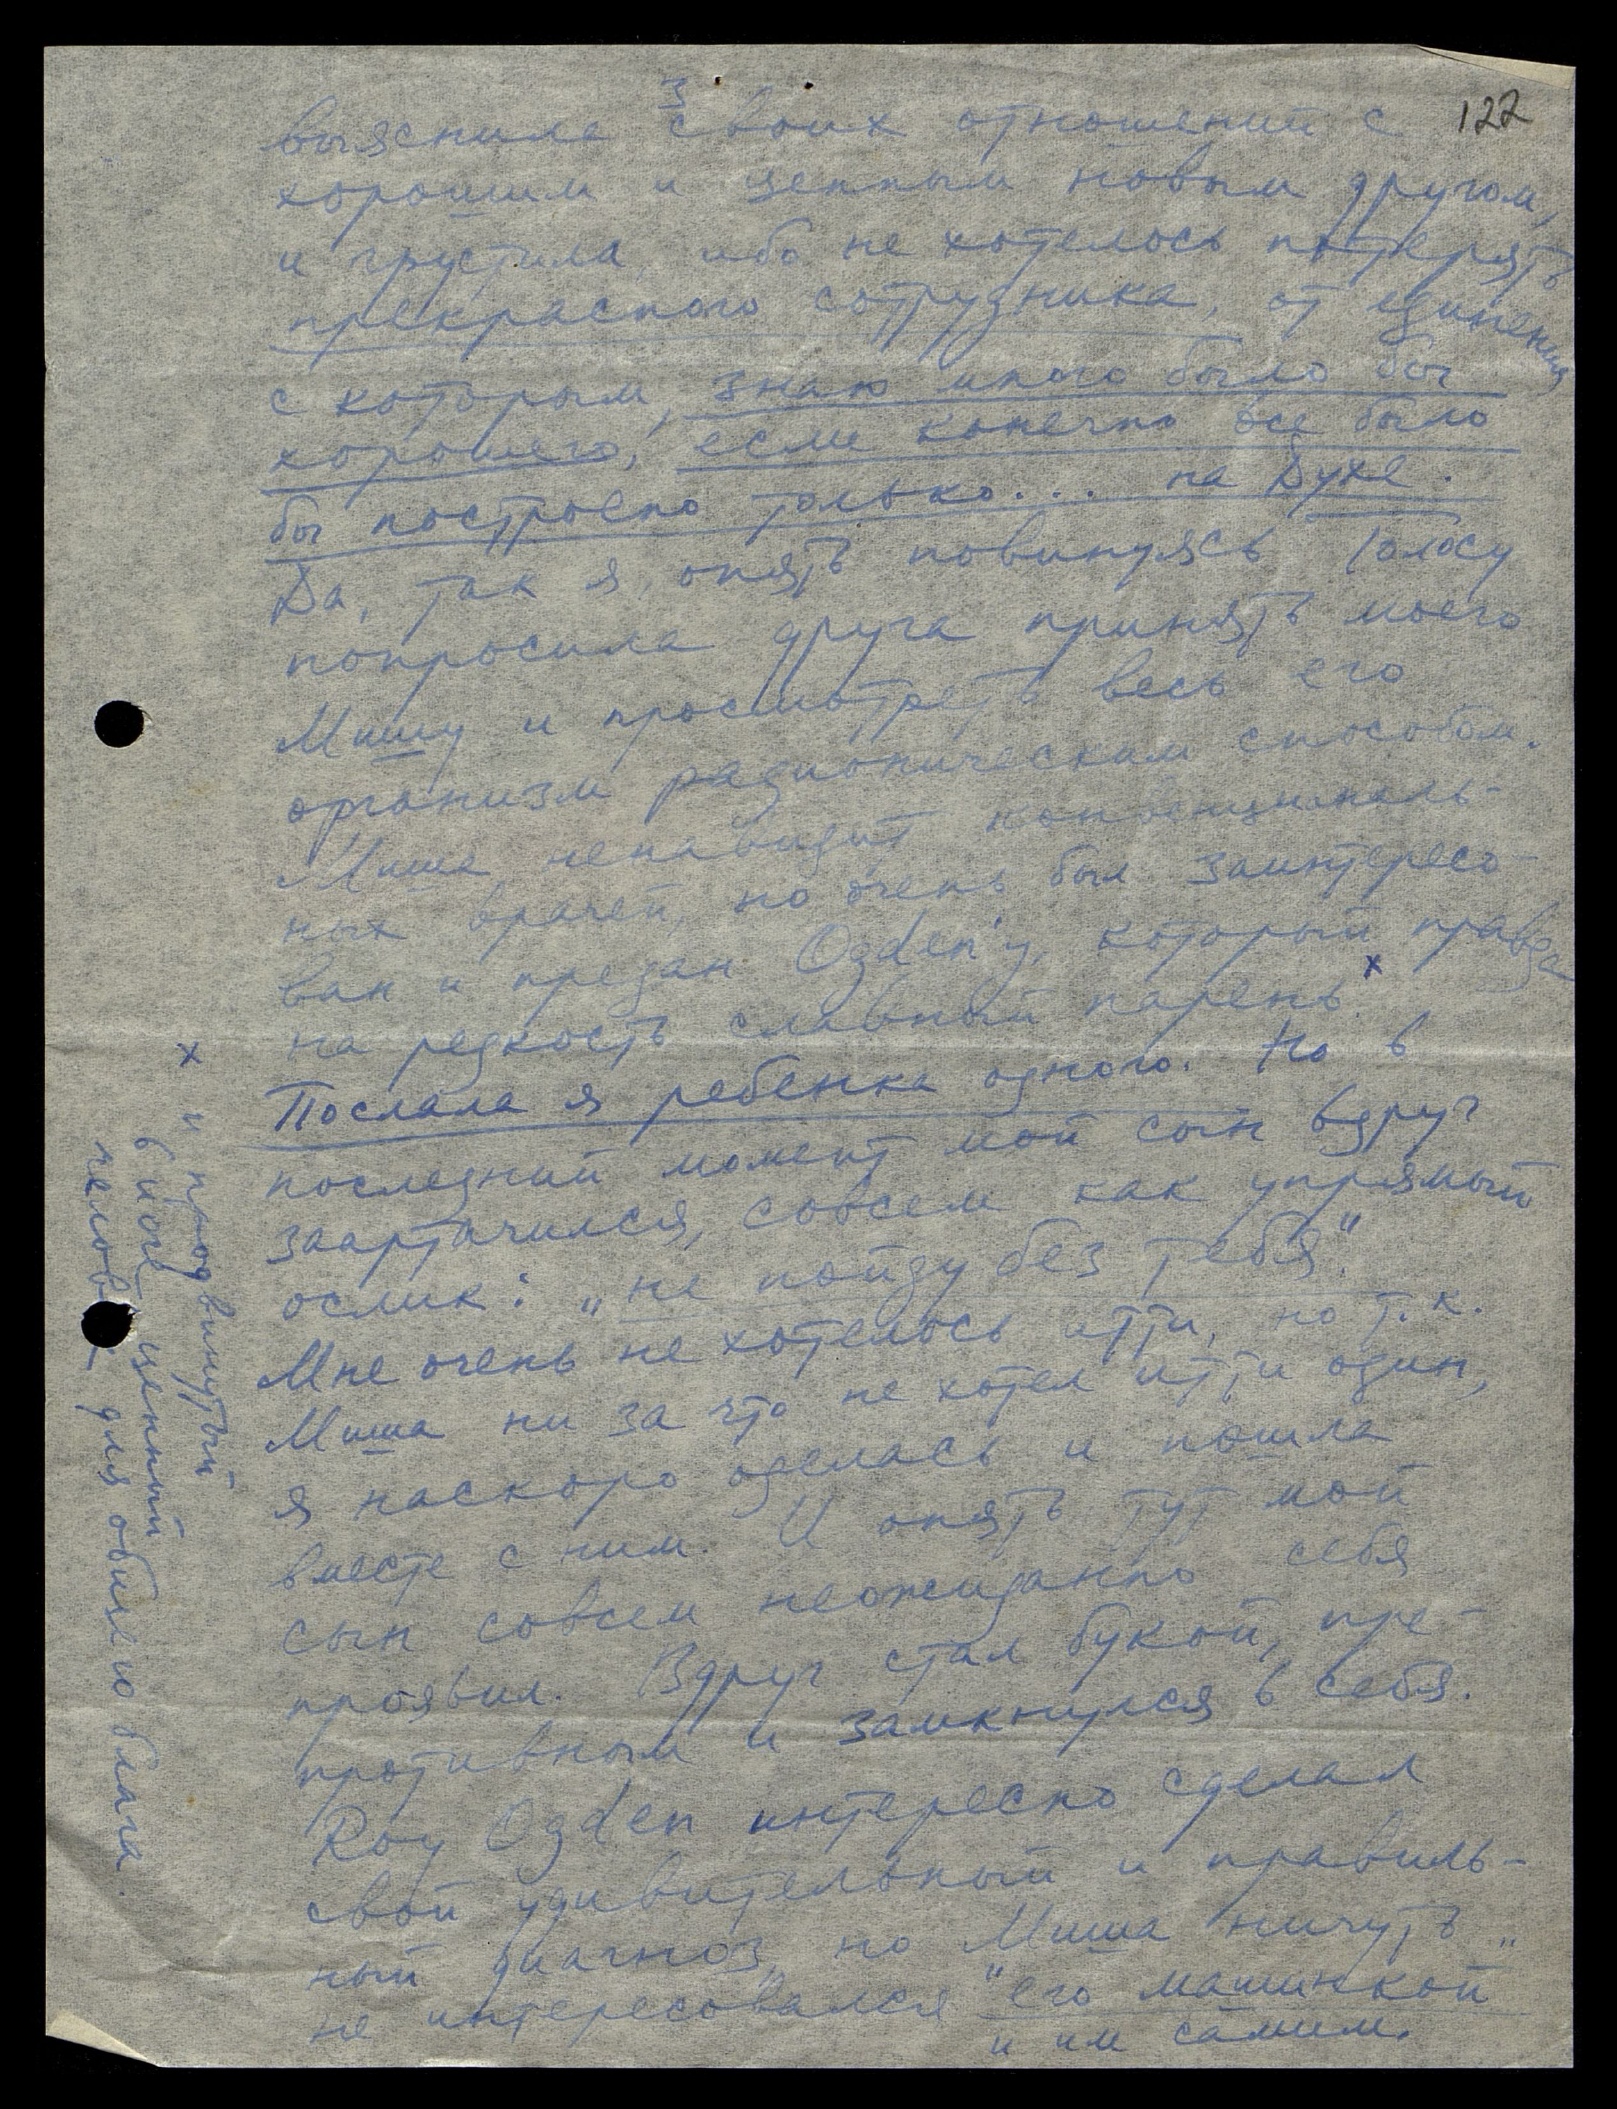 3
122
выяснила своих отношений с
хорошим и ценным новым другом,
и грустила, ибо не хотелось потерять
прекрасного сотрудника, от единения
с которым, знаю много было бы
хорошего, если конечно все было
бы построено только... на Духе.
Да, так я, опять повинуясь Голосу
попросила друга принять моего
Мишу и просмотреть весь его
организм радионическим способом.
Миша ненавидит конвенциональ-
ных врачей, но очень был заинтересо-
ван и предан Ogden'у, который правда
на редкость славный парень. x
Послала я ребенка одного. Но в
последний момент мой сын вдруг
заартачился, совсем как упрямый
ослик: „не пойду без тебя".
Мне очень не хотелось итти, но т.к.
Миша ни за что не хотел итти один,
я наскоро оделась и пошла
вместе с ним. И опять тут мой
сын совсем неожиданно себя
проявил. Вдруг стал букой, пре-
противным и замкнулся в себя.
Roy Ogden интересно сделал
свой удивительный и правиль-
ный диагноз, но Миша ничуть
не интересовался "его машинкой"
и им самим.
x и продвинутый
в йоге ценный
человек для общего блага